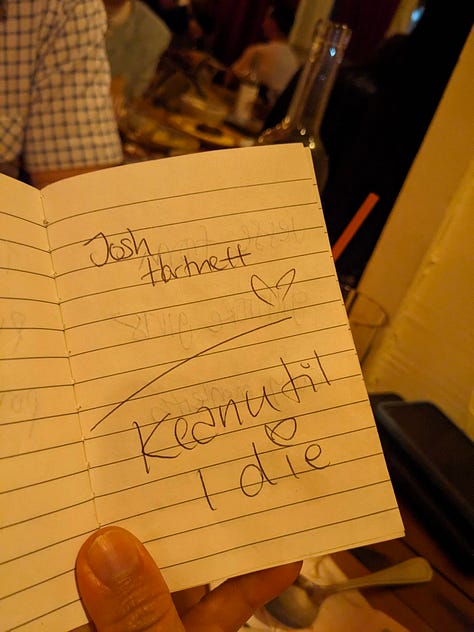 Josh
Hartnett
Keanu til
I die